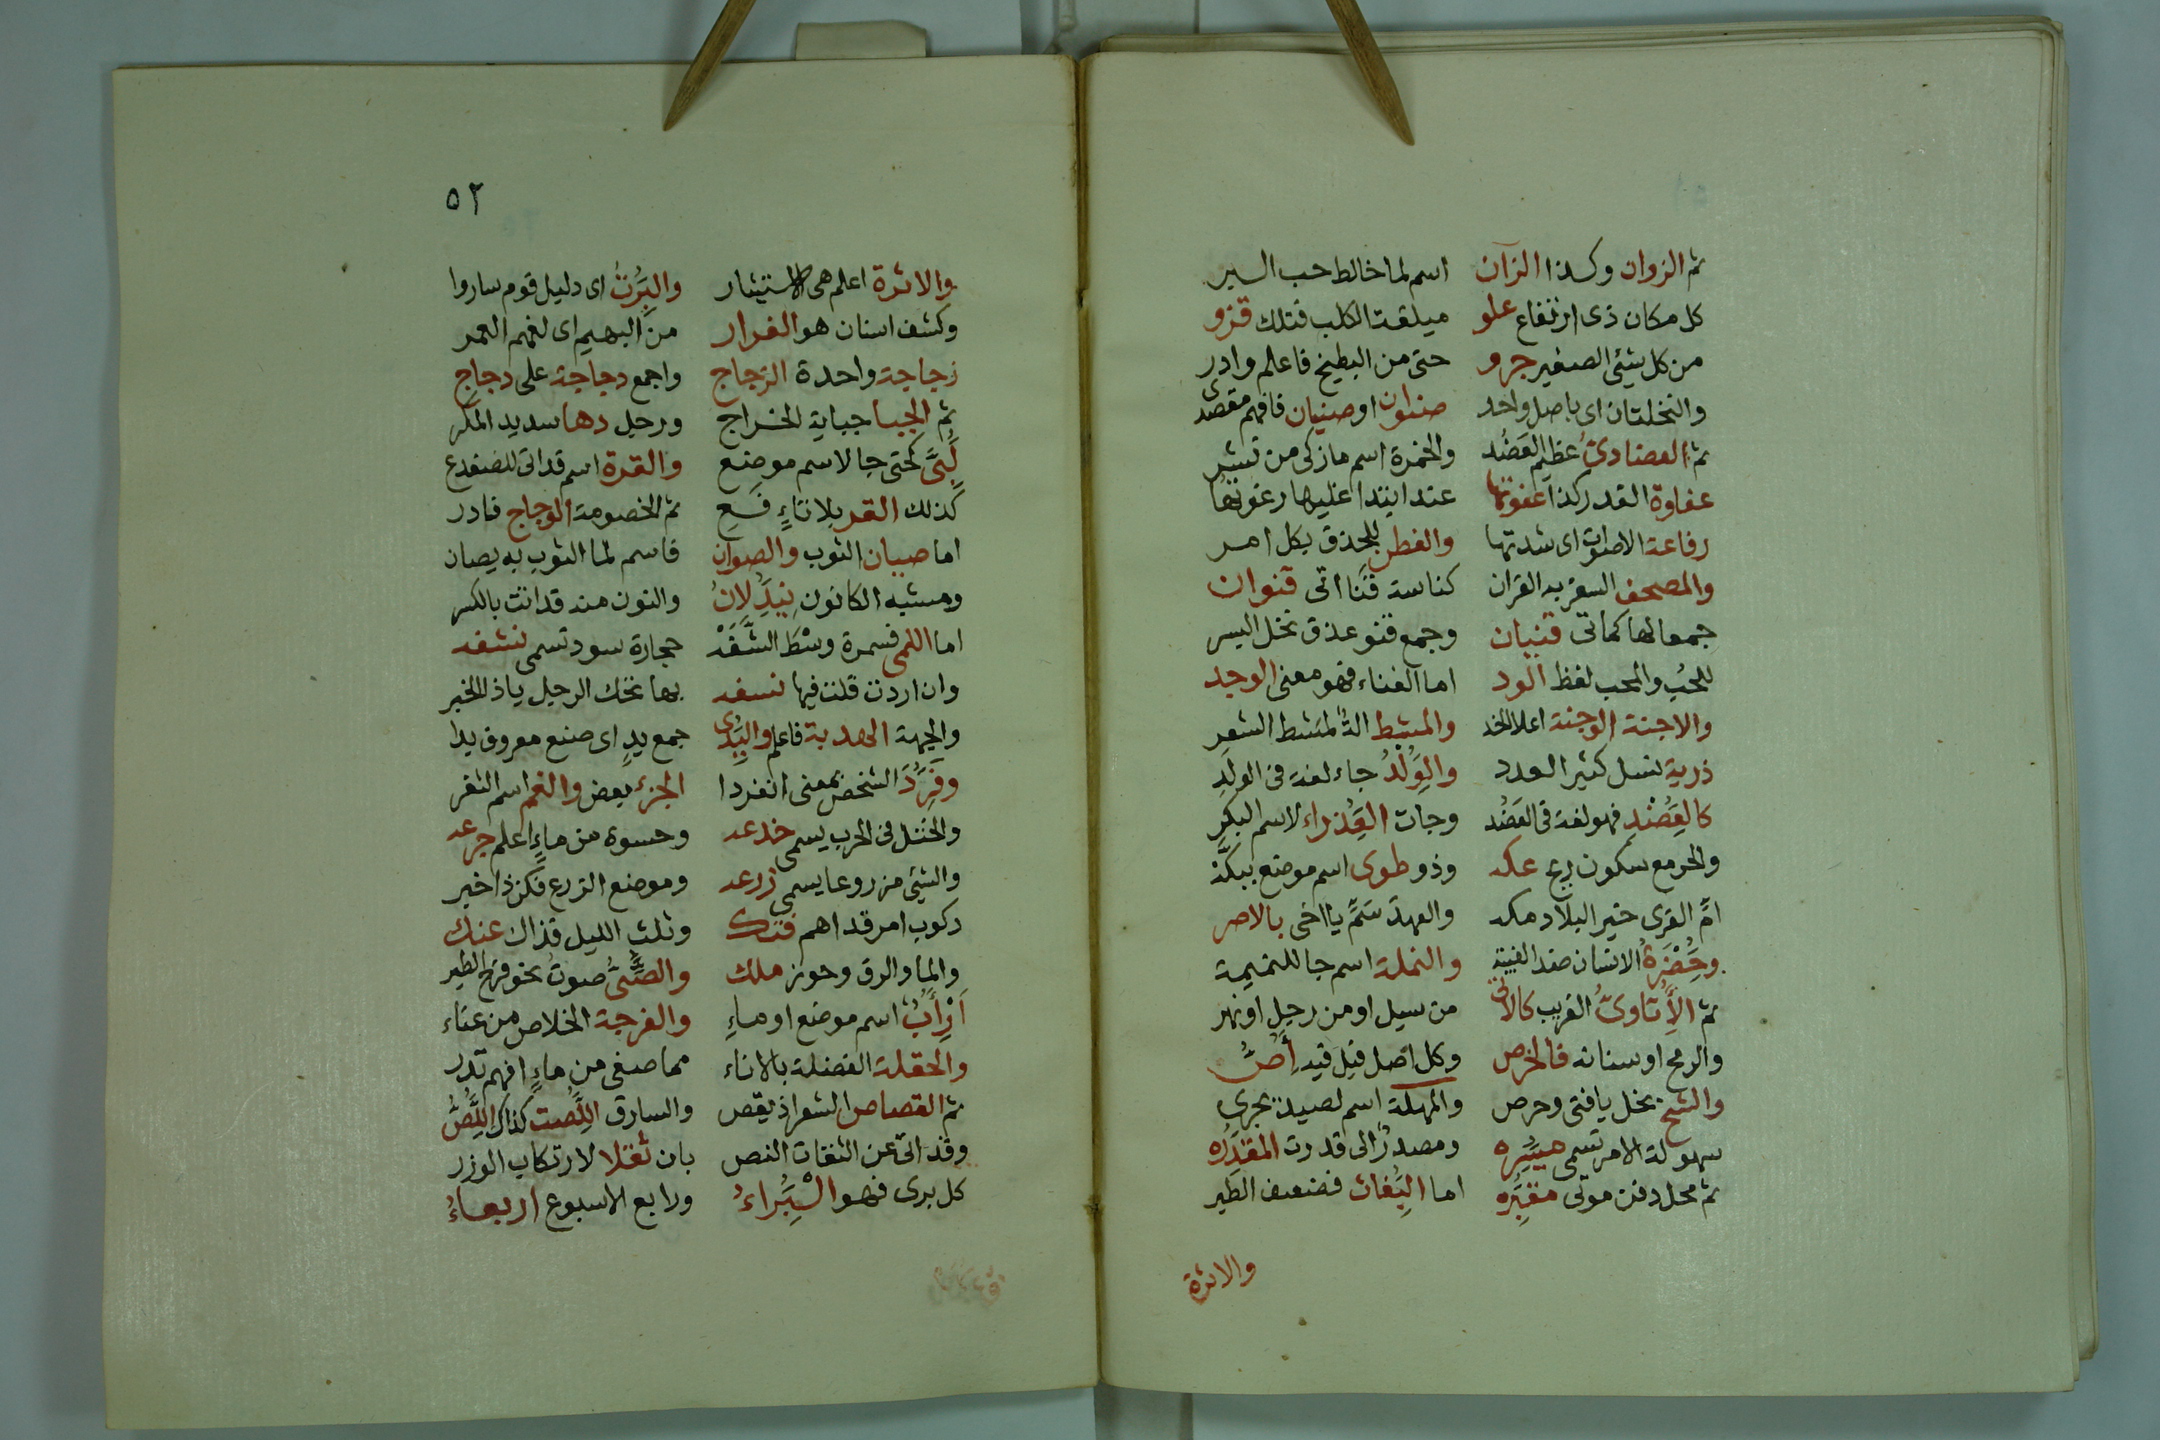 ثم الزوان وكذا الزآن اسم لما خالط حب البر
كل مكان ذى ارتفاع علو ميلقة الكلب فتلك قزو
من كل شئ الصغير جرو حتى من البطيخ فاعلم وادر
والنخلتان اى باصل واحد صنوان او صنيان فافهم مقصدى
ثم العضادىُّ عظيم العَضُد والخمرة اسم ما زكى من نشر
عفاوة القدر كذا عفوتها عند ابتدا غليها رغوتها
رفاعة الاصوات اى شدتها والفطن للحذق بكل امر
والمصحف السفر به القران كناسة قنا اتى قنوان
جمعا لها كما اتى قنيان وجمع قنو عذق نخل اليسر
للحُب والمحب لفظ الود اما الغناء فهو معنى الوجد
والاجنة الوجنة اعلا الخد والمشط الة لمشط الشعر
ذرية نسل كثير العدد والوُلْدُ جاء لغة فى الولَدِ
كالعَضْد فهو لغة فى العَضُد وجات العذراء لاسم البكرِ
والحر مع سكون ريح عكه وذو طوى اسم موضع بمكة
امُّ القرى خير البلاد مكه والعهد سَمِّ يا اخى بالاصر
وحضرة الانسان ضد الغيبة والنملة اسم جا للنميمة
ثم الأتاوىُّ الغريب كالاتى من سيل او من رجل او نهر
والرمح او سنانه فالخرص وكل اصل قيل فيه أصُّ
والشح بخل يا فتى وحرص والمهلة اسم لصيد يجرى
سهولة الامر تسمى ميسره ومصدرٌ الى قدرت المقدره
ثم محل دفن موتى مقبره اما البغاث فضعيف الطير
والاثرة
٥٢
والاثرة اعلم هى الاستيثار والبرتُ اى دليل قوم ساروا
وكشف اسنان هو الفرار من البهيم اى لفهم العمر
زجاجة واحدة الزجاج واجمع دجاجة على دجاجِ
ثم الجبا جباية الخراج ورجل دها سديد المكر
لُبَّى كحتى جا لاسم موضع والقرة اسم قد اتى للضفدع
كذلك القر بلا تاءٍ فَعِ ثم الخصومة الوجاج فادر
اما صيان الثوب والصوان فاسم لما الثوب به يصان
ومشبه الكانون نيدلانُ والنون منه قد اتت بالكسر
اما اللمى فسمرة وسْطَ الشَّفَهْ حجارة سود تسمى نشفه
وان اردت قلت فيها نسفه بها تحك الرجل ياذا الخبر
والجهة الهدبة فاعلم واليدى جمع يدٍ اى صنع معروف يدا
وفرد الشخص بمعنى انفردا الجزء بعض والغم اسم الثغر
والختل فى الحرب يسمى خدعه وحسوة من ماءٍ اعلم جرعه
والشئ مزروعا يسمى زرعه وموضع الزرع فكن ذا خير
ركوب امر قد اهم فتك وثلث الليل فذاك عنك
والما والرق وحوز ملك والصئى صوتُ نحو فرخ الطير
أرابُ اسم موضع او ماءِ والفرجة الخلاص من عناء
والحقلة الفضلة بالاناء مما صفى من ماءٍ افهم تدر
ثم القصاص الشعر اذ يقص والسارق اللصت كذاك اللصُّ
وقد اتى عن الثقات النص بان ثقلا لارتكاب الوزر
كل برى فهو البراءُ ورابع الاسبوع اربعاءُ